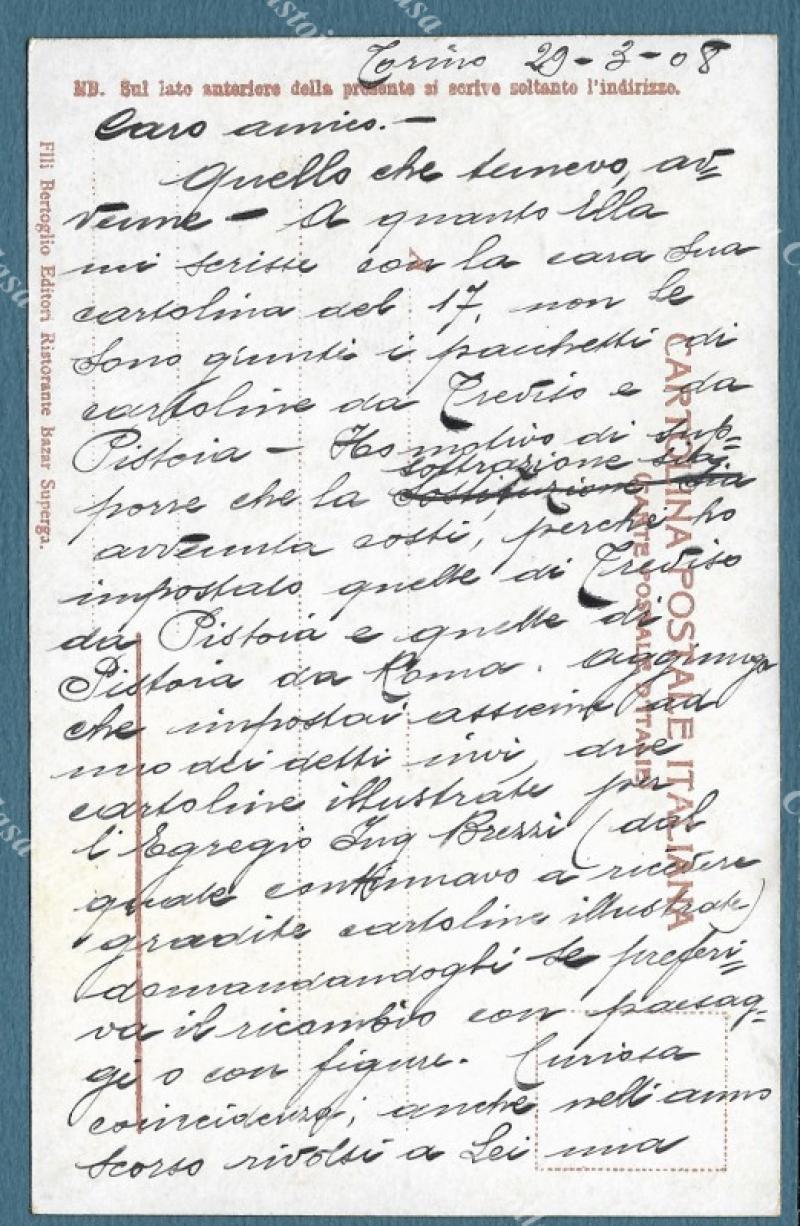 Torino 29-3-08
NB. Sul lato anteriore della presente si scrive soltanto l'indirizzo.
Caro amico.—
Quello che temevo, av=
venne — A quanto Ella
mi scrisse con la cara Sua
cartolina del 17, non Le
sono giunti i pacchetti di
cartoline da Treviso e da
Pistoia — Ho motivo di sup=
sottrazione sia
porre che la sostituzione sia
avvenuta costì, perchè ho
impostato quelle di Treviso
da Pistoia e quelle di
Pistoia da Roma. aggiungo
che impostai assieme ad
uno dei detti invi, due
cartoline illustrate per
l'Egregio Ing Brezzi (dal
quale continuavo a ricevere
gradite cartoline illustrate)
domandandogli se preferi=
va il ricambio con paesag=
gi o con figure. Curiosa
coincidenza; anche nell'anno
scorso rivolsi a Lei una
CARTOLINA POSTALE ITALIANA
CARTE POSTALE D'ITALIE
Flli Bertoglio Editori Ristorante Bazar Superga.